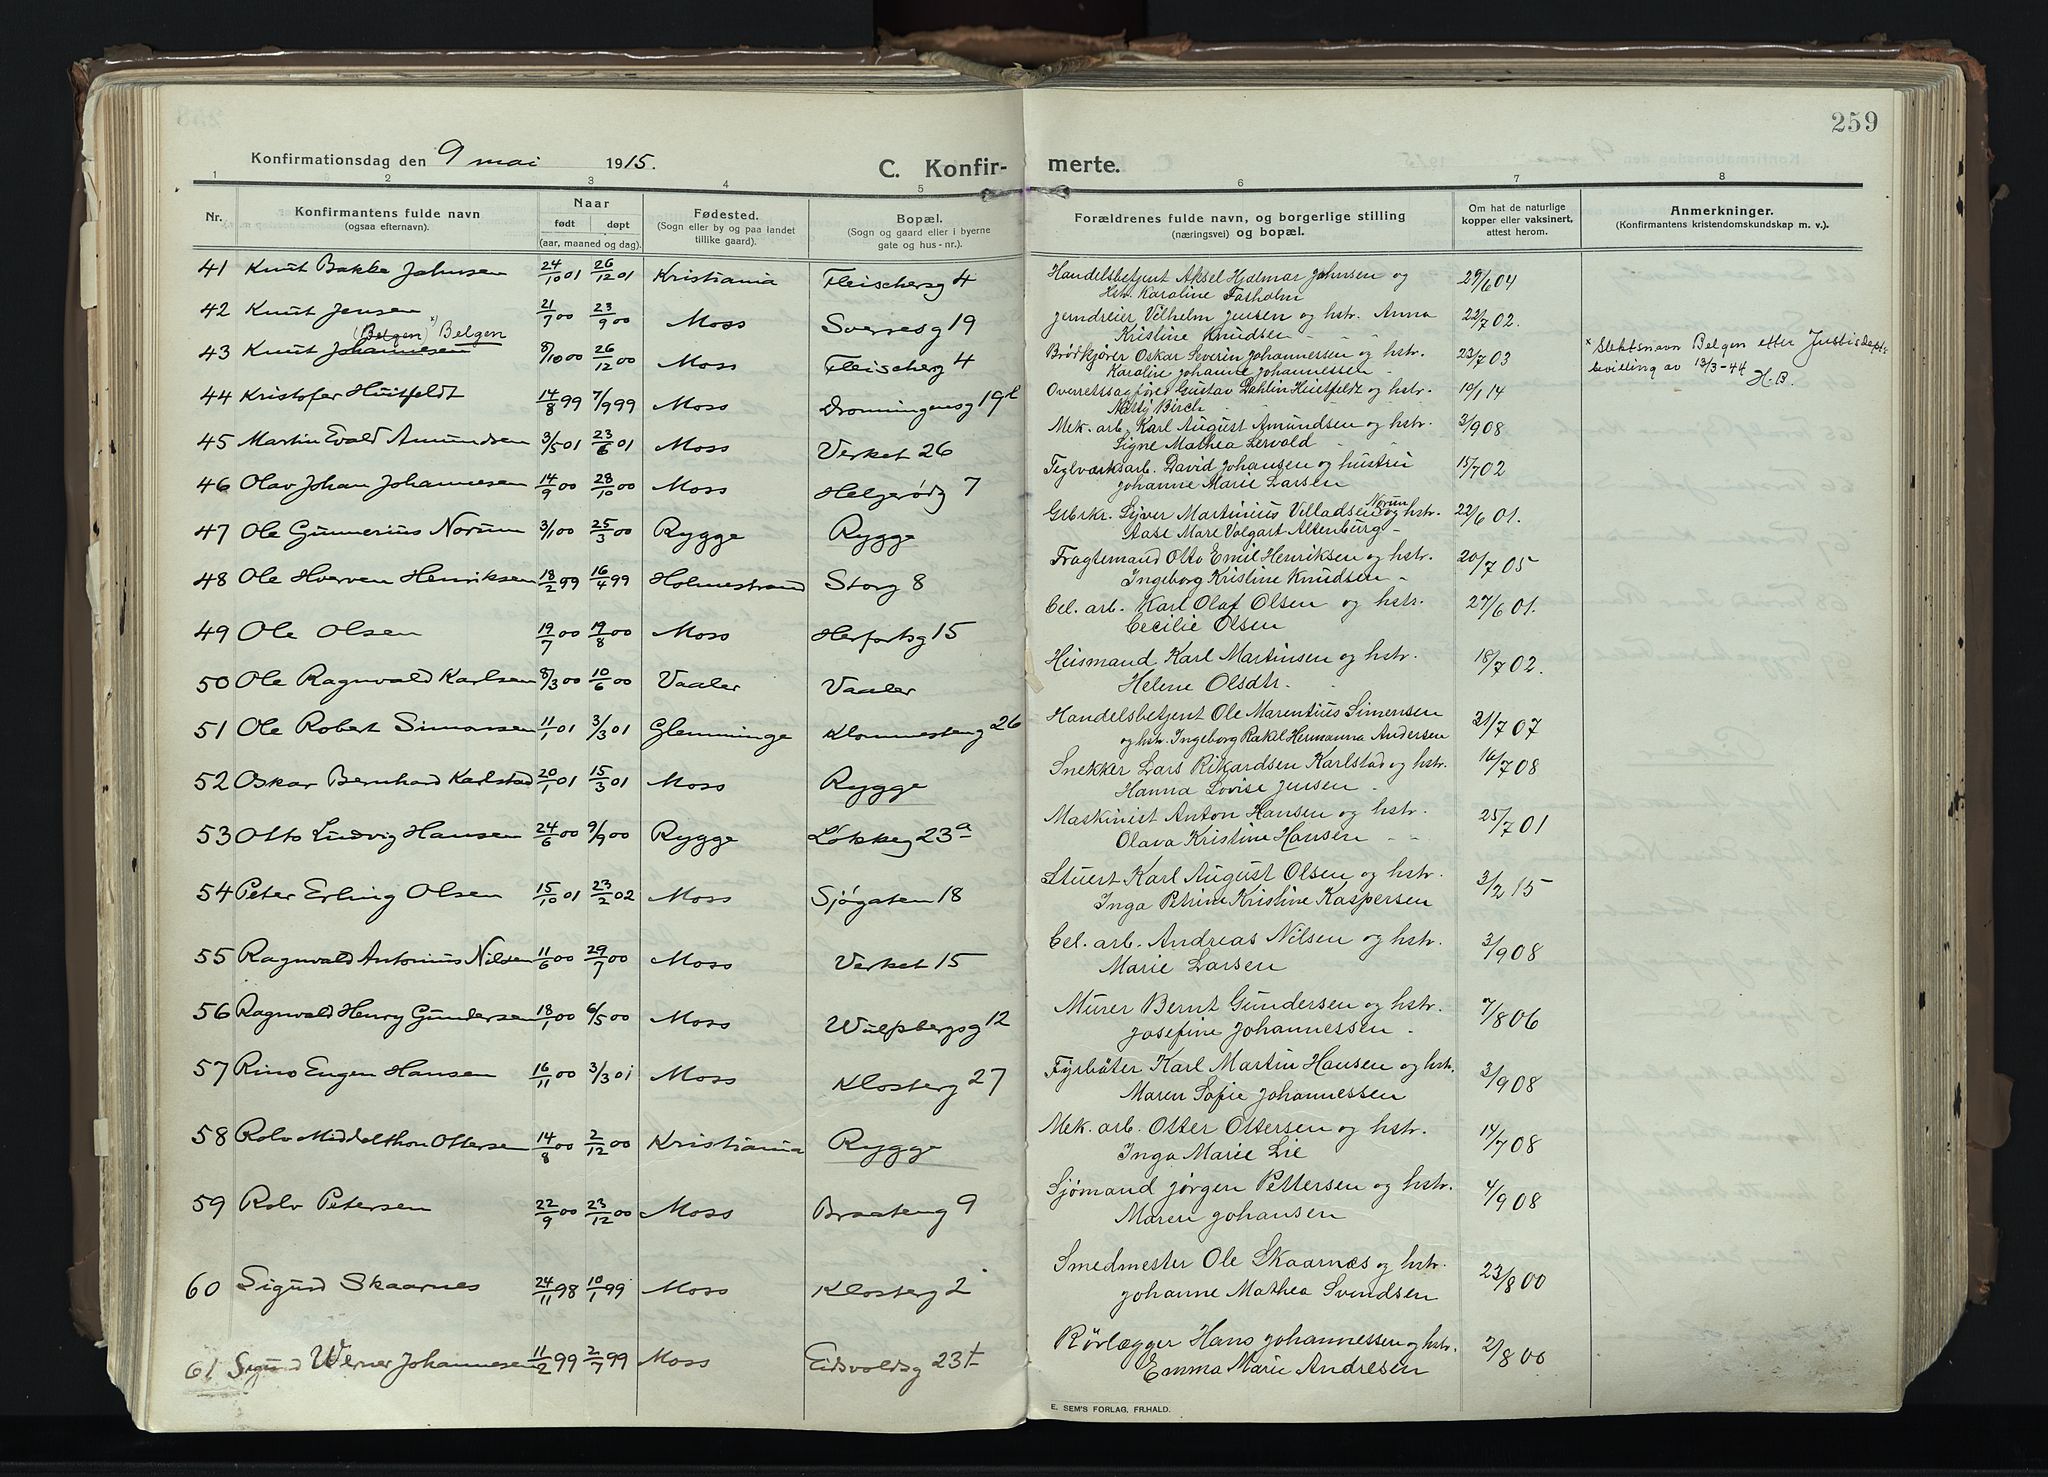 259
Konfirmationsdag den 9 mai 1915.
C. Konfir-merte.
1 2 3 4 5 6 7 8
Nr. Konfirmantens fulde navn (ogsaa efternavn). Naar født døpt (aar, maaned og dag). Fødested. (Sogn eller by og paa landet tillike gaard). Bopæl. (Sogn og gaard eller i byerne gate og hus-nr.). Forældrenes fulde navn, og borgerlige stilling (næringsvei) og bopæl. Om hat de naturlige kopper eller vaksinert, attest herom. Anmerkninger. (Konfirmantens kristendomskundskap m. v.).
41 Knut Bakke Johnsen 24/10 01 26/12 01 Kristiania Fleischersg 4 Handelsbetjent Aksel Hjalmar Johnsen og 29/6 04
Hst. Karoline Fosholm
42 Knut Jensen 21/7 00 23/9 00 Moss Sverresg 19 Jerndreier Vilhelm Jensen og hstr. Anna 22/7 02.
Kristine Knudsen
(Belgen) x) Belgen
43 Knut Johannesen 8/10 00 26/12 00 Moss Fleischerg 4 Brödkjører Oskar Severin Johannessen og hstr. 23/7 03 x Slektsnavn Belgen etter Justisdepts
Karoline Johanne Johannessen - bevilling av 13/3-44 H.B.
44 Kristofer Huitfeldt 14/8 99 7/9 99 Moss Dronningensg 19b Overretssagfører Gustav Dahlin Huitfeldt og hstr. 10/1 14
Birch
45 Martin Evald Amundsen 3/5 01 23/6 01 Moss Verket 26 Mek. arb. Karl August Amundsen og hstr. 3/9 08
Signe Mathea Lervold
46 Olav Johan Johannesen 14/9 00 28/10 00 Moss Helgerødg 7 Teglværksarb. David Johansen og hustru 15/7 02
Johanne Marie Larsen
47 Ole Gunnerius Norum 3/1 00 25/3 00 Rygge Rygge Grbrkr. Syver Martinius Villadsen Norum og hstr. 22/6 01.
Aase Mare Volgart Altenburg -
48 Ole Hverven Henriksen 18/2 99 16/4 99 Holmestrand Storg 8 Fragtemand Otto Emil Henriksen og hstr. 20/7 05
Ingeborg Kristine Knudsen -
49 Ole Olsen 19/7 00 19/8 00 Moss Herfordsg 15 Cel. arb. Karl Olaf Olsen og hstr. 27/6 01.
Cecilie Olsen
50 Ole Ragnvald Karlsen 8/3 00 10/6 00 Vaaler Vaaler Husmand Karl Martinsen og hstr. 18/7 02.
Helene Olsdtr.
51 Ole Robert Simonsen 11/1 01 3/3 01 Glemminge Klommesteng 26 Handelsbetjent Ole Marentius Simensen 21/7 07
og hstr. Ingeborg Rakel Hermanna Andersen
52 Oskar Bernhard Karlstad 20/1 01 15/3 01 Moss Rygge Snekker Lars Rikardsen Karlstad og hstr. 16/7 08
Hanna Lovise Jensen -
53 Otto Ludvig Hansen 24/6 00 9/9 00 Rygge Løkkeg 23a Maskinist Anton Hansen og hstr. 25/7 01
Olava Kristine Hansen
54 Peter Erling Olsen 15/10 01 23/2 02 Moss Sjøgaten 18 Stuert Karl August Olsen og hstr. 3/2 15
Inga Petrine Kristine Kaspersen
55 Ragnvald Antonius Nilsen 11/6 00 29/7 00 Moss Verket 15 Cel. arb. Andreas Nilsen og hstr. 3/9 08
Marie Larsen
56 Ragnvald Henry Gundersen 18/1 00 6/5 00 Moss Wulfsbergsg 12 Murer Bernt Gundersen og hstr. 7/8 06
Josefine Johannessen -
57 Rino Eugen Hansen 16/11 00 3/3 01 Moss Klosterg 27 Fyrbøter Karl Martin Hansen og hstr. 3/9 08
Maren Sofie Johannessen
58 Rolv Middelthon Ottersen 14/8 00 2/12 00 Kristiania Rygge Mek. arb. Otter Ottersen og hstr. 14/7 08
Inga Marie Lie
59 Rolv Petersen 22/9 00 23/12 00 Moss Braateng 9 Sjømand Jørgen Pettersen og hstr. 4/9 08
Maren Johansen
60 Sigurd Skaarnes 24/11 98 10/1 99 Moss Klosterg 2 Smedmester Ole Skaarnæs og hstr. 23/8 00
Johanne Mathea Svendsen
61 Sigurd Werner Johannesen 11/2 99 2/7 99 Moss Eidsvoldsg 23 Rørlægger Hans Johannessen og hstr. 2/8 00
Emma Marie Andresen
E. SEM'S FORLAG, FR.HALD.